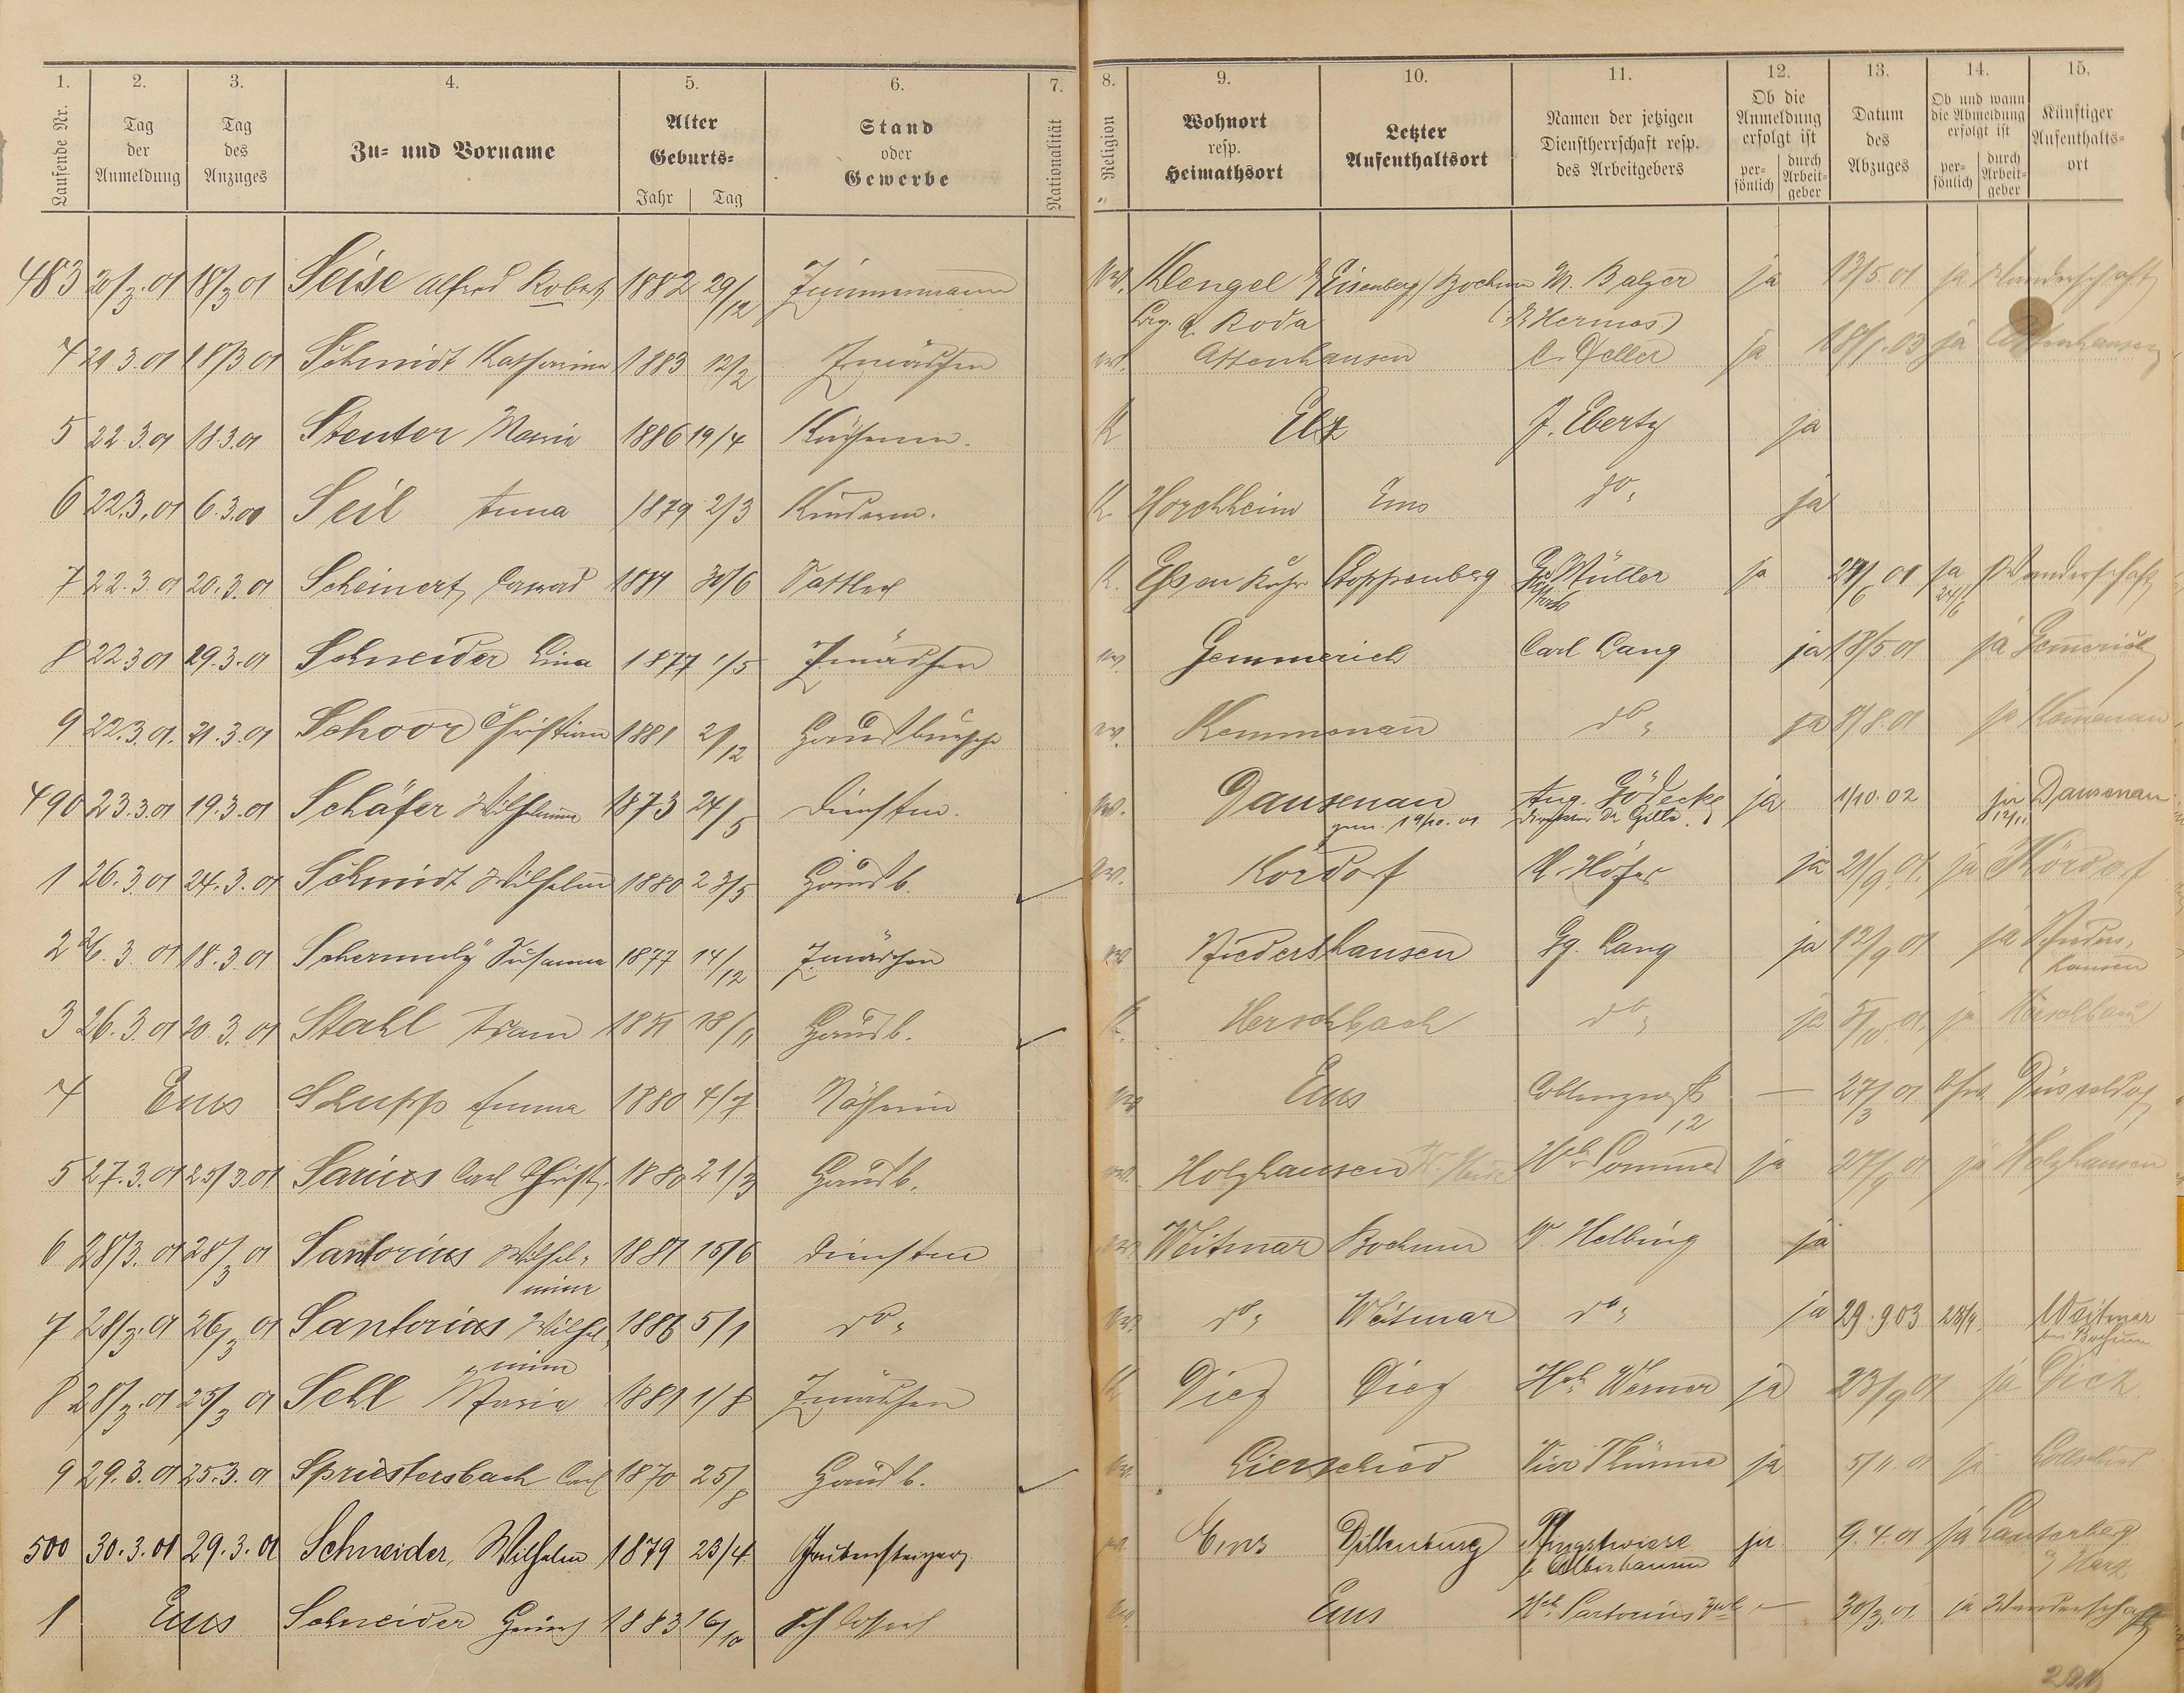 1. 2. 3. 4. 5. 6. 7. 8. 9. 10. 11. 12. 13. 14. 15.
Laufende Nr. Tag der Anmeldung Tag des Anzuges Zu- und Vorname Alter Geburts- Jahr Tag Stand oder Gewerbe Nationalität Religion Wohnort resp. Heimathsort Letzter Aufenthaltsort Namen der jetzigen Dienstherrschaft resp. des Arbeitgebers Ob die Anmeldung erfolgt ist persönlich durch Arbeitgeber Datum des Abzuges Ob und wann die Abmeldung erfolgt ist persönlich durch Arbeitgeber Künftiger Aufenthalts-ort
483 20/3.01 18/3 01 Seise Alfred Robert 1882 29/12 Zimmermann ev. Klengel Eisenberg Bochum M. Balzer ja 13/5.01 ja Wanderschaft
Roda (Hermes)
4 21.3.01 18/3 01 Schmidt Katharina 1883 12/2 Zmädchen ev. Attenhausen ja 18/1.03 ja Attenhausen
5 22.3.01 18.3.01 Stenter Maria 1886 19/4 K Elz J. Ebertz ja
6 22.3.01 6.3.01 Seil Anna 1879 2/3 Kinderm. K. Horchheim Ems do. ja
7 22.3.01 20.3.01 Scheinert 30/6 Sattler K. Stoppenberg Müller ja 01 ja Wanderschaft
24/6
8 22 3 01 29.3.01 Schneider Lina 1877 1/5 Zmädchen ev. Gemmerich Carl Lang ja 18/5 01 ja Gemmerich
9 22.3.01. 21.3.01 Schoor Christian 1881 2/12 Hausbursche ev. Kemmenau do. ja 8.01 ja Kemmenau
490 23.3.01 19.3.01 Schäfer Wilhelmine 1873 24/5 Dienstm. ev. Dausenau Aug. Gödecke ja 1/10.02 ja Dausenau
19/10.01 12/11.
1 26.3.01 24.3.01 Schmidt Wilhelm 1880 23/5 Hausb. ev. Kördorf Höfer ja 21/9.01. ja Kördorf
2 26.3.01 18.3.01 Schermuly Susanna 1877 14/12 Zmädchen ev. Niedershausen Gg. Lang ja 12/9 01 ja Nieders-
hausen
3 26.3.01 20.3.01 Stahl Adam 18/11 Hausb. K. Herschbach do. ja 01. ja Herschbach
4 Ems Schupp Emma 1880 4/7 Näherin ev. Ems Coblenzerstr. — 27/3 01 Düsseldorf
12
5 27.3.01 25/3.01. Sarius Carl Christ. 1880 21/3 Hausb. ev. Holzhausen Hch. Sommer ja 27/9 01 ja Holzhausen
6 28/3.01 28/3 01 Santorius Wilhel- 1881 15/6 Dienstm ev. Weitmar Bochum W Helbing ja
mine
7 28/3.01 26/3 01 Santorius Wilhel- 1886 5/1 do. ev. do. Weitmar do. ja 29.9.03 28/9. Weitmar
mine bei Bochum
8 28/3.01 25/3 01 Sehl Maria 1881 1/8 Zmädchen K Diez Diez Hch. Werner ja 23/9 01 ja Diez
9 29.3.01 25.3.01 Spriestersbach Carl 1870 25/8 Hausb. ev. Lierschied Thürme ja 5/11.01 ja Lierschied
500 30.3.01 29.3.01 Schneider, Wilhelm 1879 23/4 Grubensteiger ev. Ems Dillenburg Pfingstwiese ja 9.4.01 ja Lauterberg
Harz
1 Ems Schneider Heinrich 1883 16/10 Schlosser ev. Ems Hch. Sartorius — 30/3.01 ja Wanderschaft